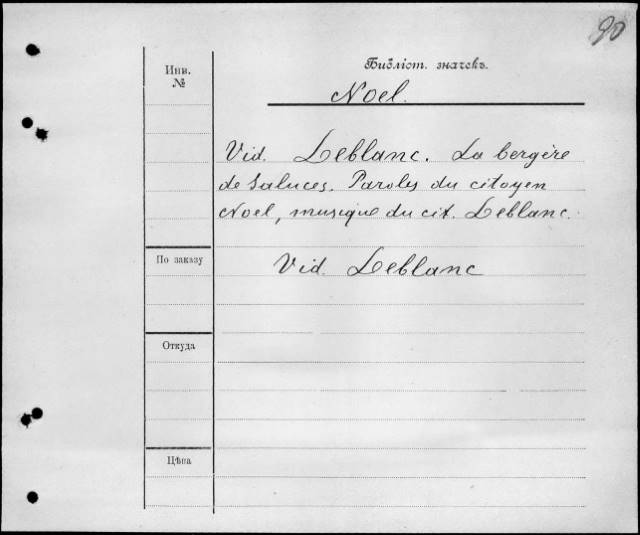 90
Инв.
№
Библіот. значекъ.
Noel.
Vid. Leblanc. La bergère
de Saluces. Paroles du citoyen
Noel, musique du cit. Leblanc.
По заказу
Vid. Leblanc
Откуда
Цѣна